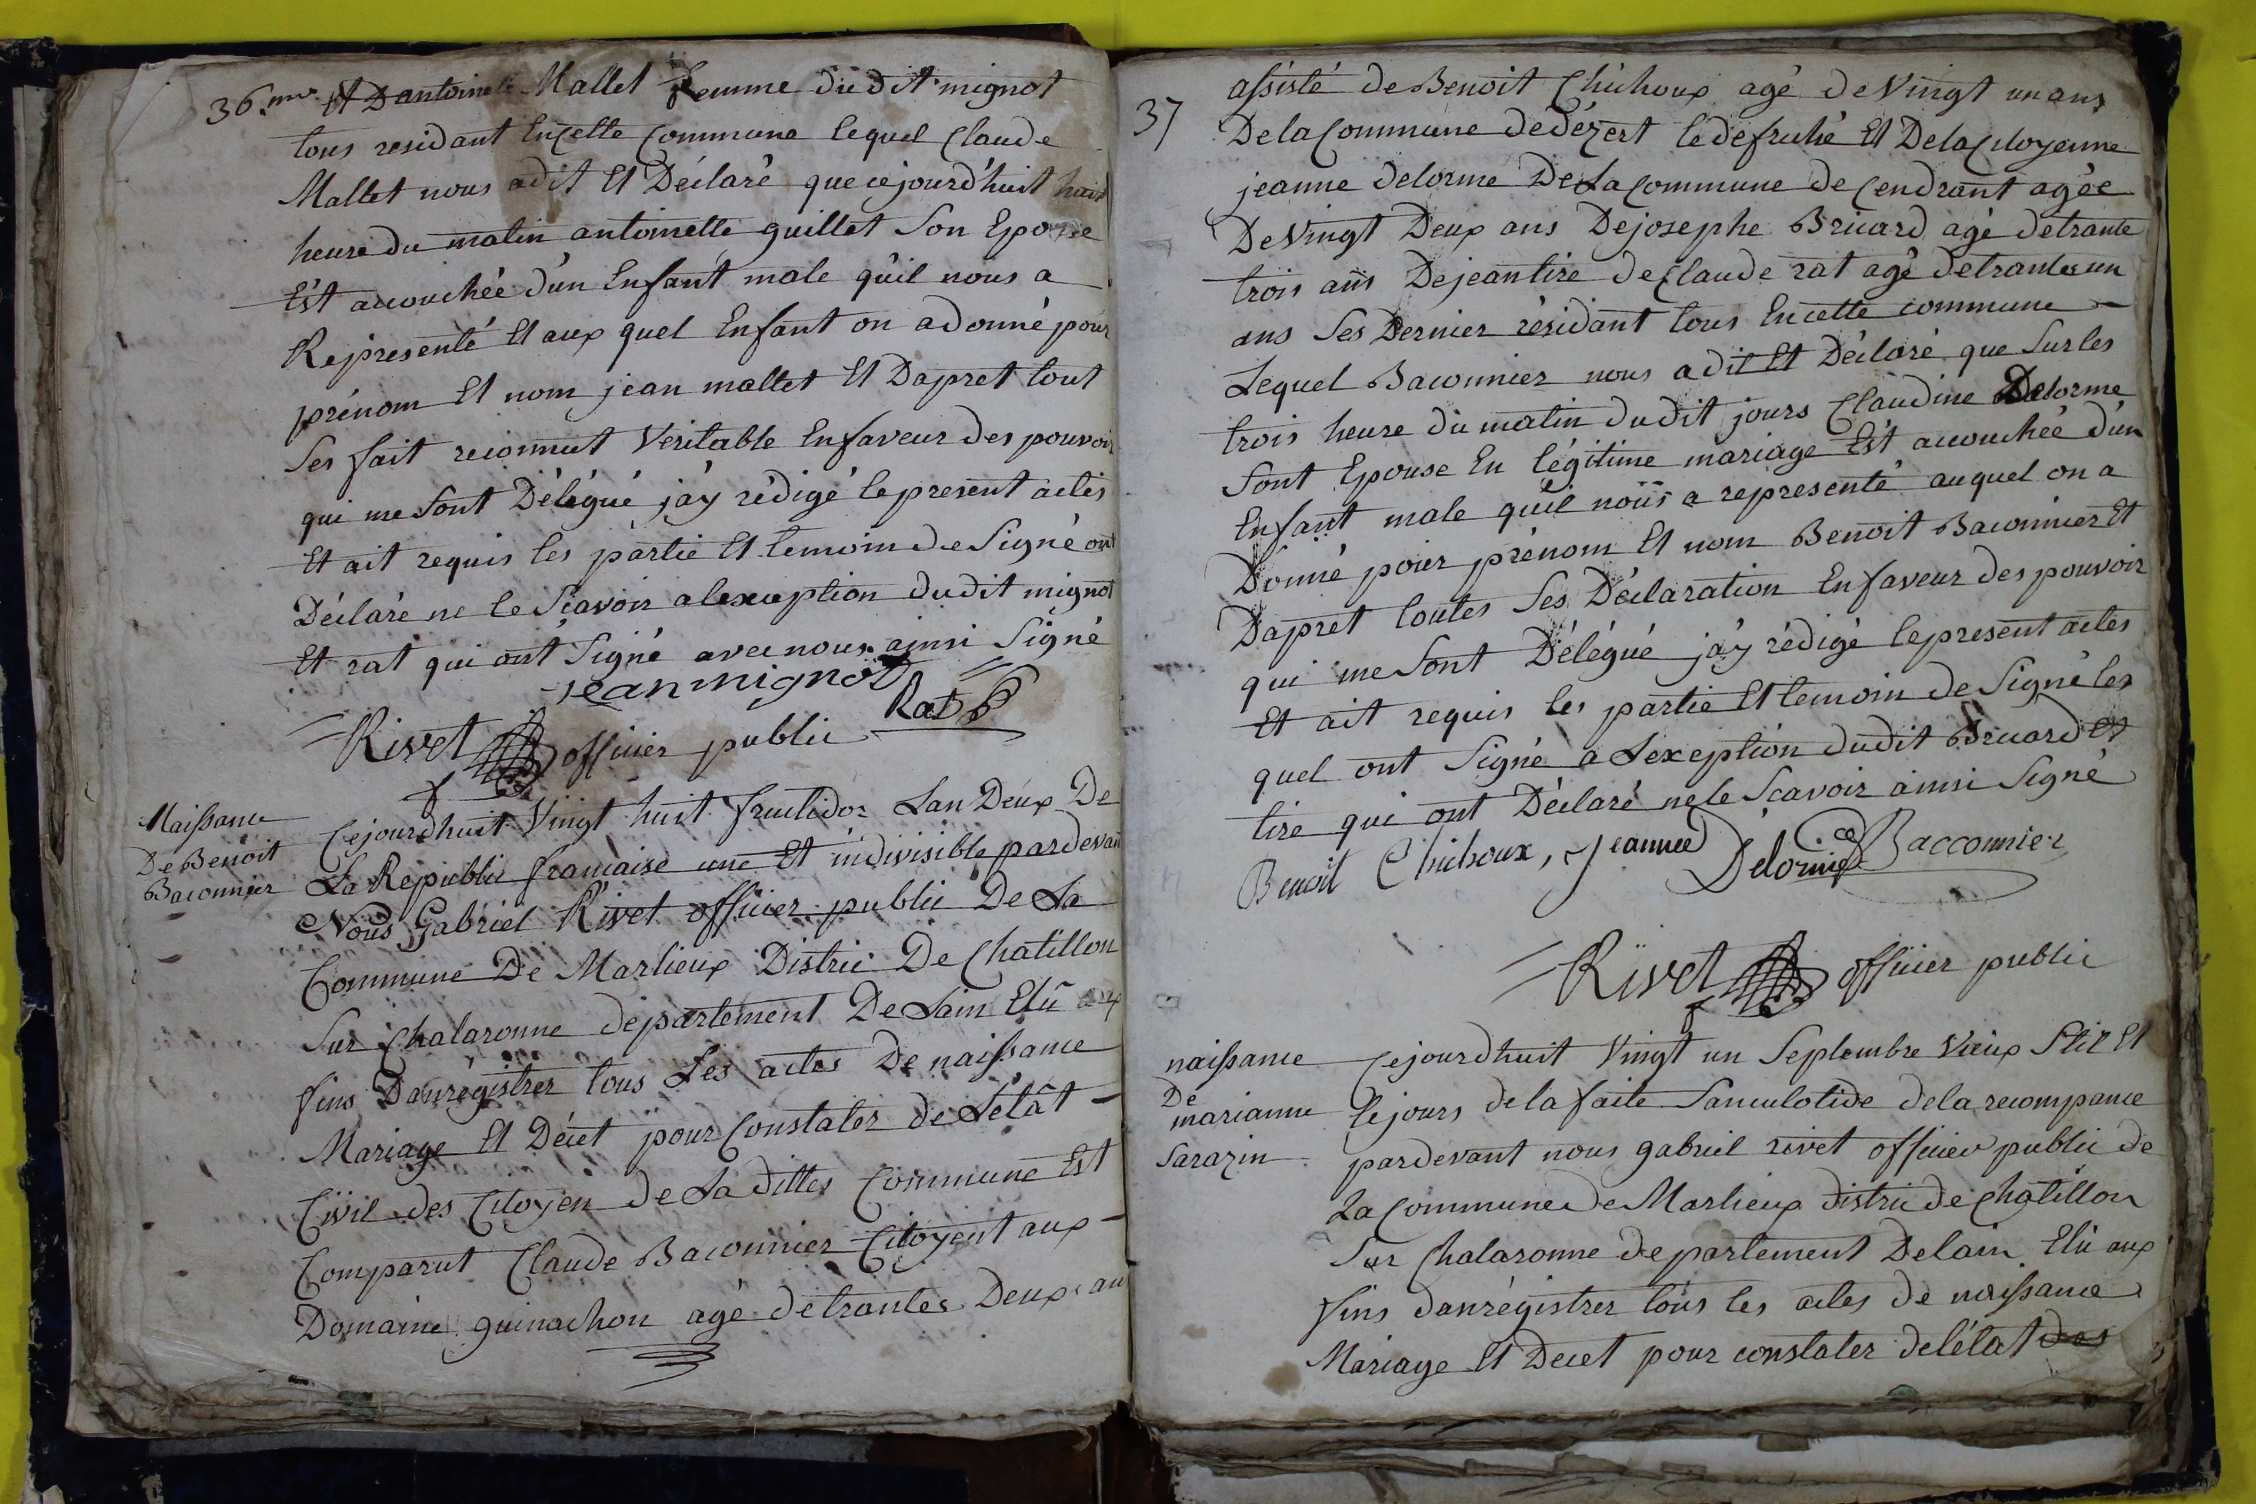 36.me Et D antoinete Mallet femme du dit mignot
tous residant En cette Commune lequel Claude
Mallet nous a dit Et Déclaré que cejourd'huit huit
heure du matin antoinette guillet Son Epouse
Est accouchée d'un Enfant male qu'il nous a
Representé Et aux quel Enfant on a donné pour
prénom Et nom jean mallet Et Dapret tout
Ses fait reconnut Veritable En faveur des pouvoir
qui me Sont Délégué j'ay rédigé le present actes
Et ait requis les partie Et temoin de Signé ont
Déclaré ne le Scavoir a lexception du dit mignot
Et rat qui ont Signé avec nous ainsi Signé
jean mignot
Rivet officier public Rat
Naissance
De Benoit
Baconnier
Cejourdhuit Vingt huit fructidor Lan Deux De
La Republic francaise une Et indivisible pardevant
Nous Gabriel Rivet officier public De La
Commune De Marlieux Distric De Chatillon
Sur Chalaronne departement De Lain Elû aux
fins Danrégistrer tous Les actes De naissance
Mariage Et Décet pour Constater de Létât
Civil des Citoyen de La dittes Commune Est
Comparut Claude Baconnier Citoyent aux
Domaine guinachon agé de trantes Deux an
37
assisté de Benoit Chichoux agé de Vingt un ans
De la Commune de dézert le defruhé Et De la Citoyenne
jeanne delorme De La Commune de Cendrant agée
De Vingt Deux ans De josephe Bricard agé de trante
trois ans De jean tire de Claude rat agé de trantes un
ans Ses Dernier résidant tous En cette commune
Lequel Baconnier nous a dit Et Déclaré que Sur les
trois heure du matin du dit jours Claudine Delorme
Sont Epouse En légitime mariage Est accouchée d'un
Enfant male qu'il nous a representé auquel on a
Donné pour prénom Et nom Benoit Baconnier Et
Dapret toutes Ses Déclaration En faveur des pouvoir
qui me Sont Délégué j'ay rédigé le present actes
Et ait requis les partie Et temoin de Signé les
quel ont Signé a Lexception du dit Bricard Et
tire qui ont Déclaré ne le Scavoir ainsi Signé
Benoit Chichoux, Jeanne Delorme Ce Bacconnier
Rivet officier public
naissance
De
marianne
Sarazin
Cejourdhuit Vingt un Septembre Vieux Stil Et
le jours de la faite Sanculotide de la recompance
pardevant nous gabriel rivet officier public de
La Commune de Marlieux distric de Chatillon
Sur Chalaronne departement De lain Elû aux
fins danrégistrer tous les actes de naissance
Mariage Et Decet pour constater de létat des